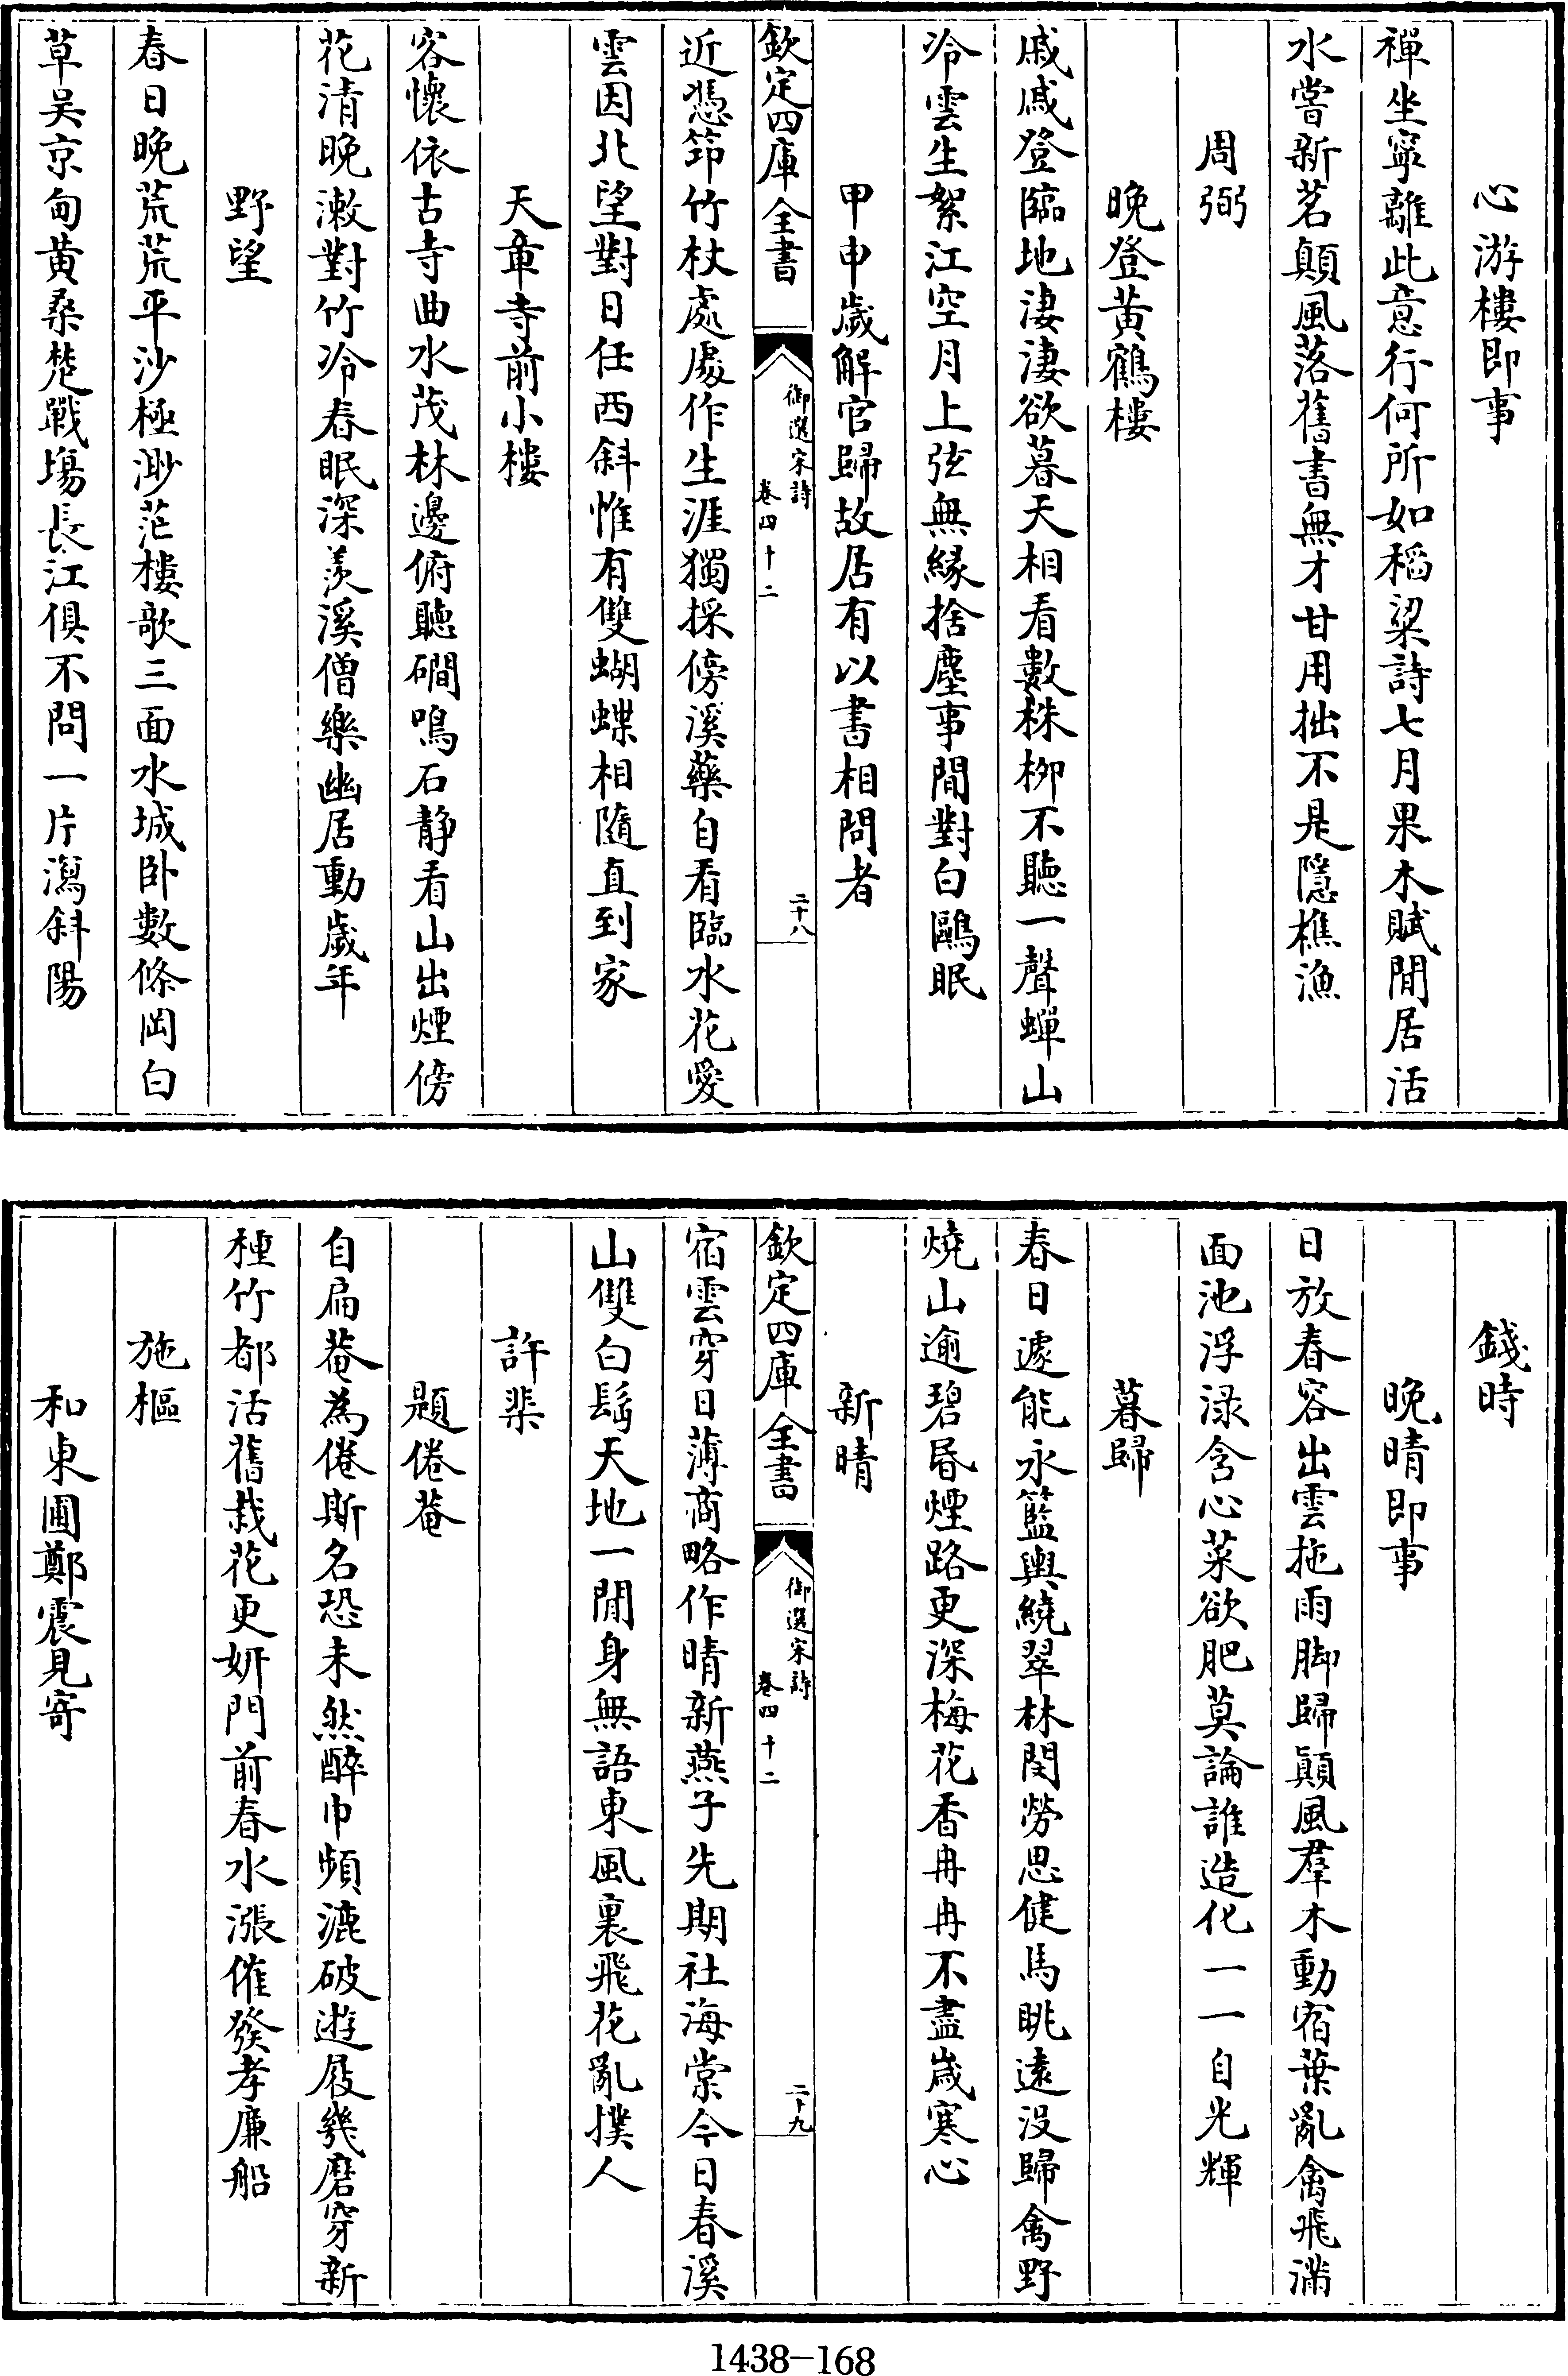 心游樓即事
禪坐寧離此意行何所如稻粱詩七月果木賦閒居活
水嘗新茗顛風落舊書無才甘用拙不是隱樵漁
周弼
晚登黃鶴樓
戚戚登臨地淒淒欲暮天相看數株柳不聽一聲蟬山
冷雲生絮江空月上弦無緣捨塵事閒對白鷗眠
甲申歲解官歸故居有以書相問者
欽定四庫全書
御選宋詩
卷四十二
二十八
近憑笻竹杖處處作生涯獨採傍溪藥自看臨水花愛
雲因北望對日任西斜惟有雙蝴蝶相隨直到家
天章寺前小樓
客懷依古寺曲水茂林邊俯聽磵鳴石静看山出煙傍
花清晚漱對竹冷春眠深羨溪僧樂幽居動歲年
野望
春日晚荒荒平沙極渺茫樓歌三面水城卧數條岡白
草吴京甸黄桑楚戰塲長江俱不問一片瀉斜陽
錢時
晚晴即事
日放春容出雲拖雨脚歸顛風羣木動宿葉亂禽飛滿
面池浮渌含心菜欲肥莫論誰造化一一自光輝
暮歸
春日遽能永籃輿繞翠林閔勞思健馬眺遠没歸禽野
燒山逾碧昏煙路更深梅花香冉冉不盡歲寒心
新晴
欽定四庫全書
御選宋詩
卷四十二
二十九
宿雲穿日薄商略作晴新燕子先期社海棠今日春溪
山雙白髩天地一閒身無語東風裏飛花亂撲人
許棐
題倦菴
自扁菴為倦斯名恐未然醉巾頻漉破遊屐幾磨穿新
種竹都活舊栽花更妍門前春水漲催發孝廉船
施樞
和東圃鄭震見寄
1438-168